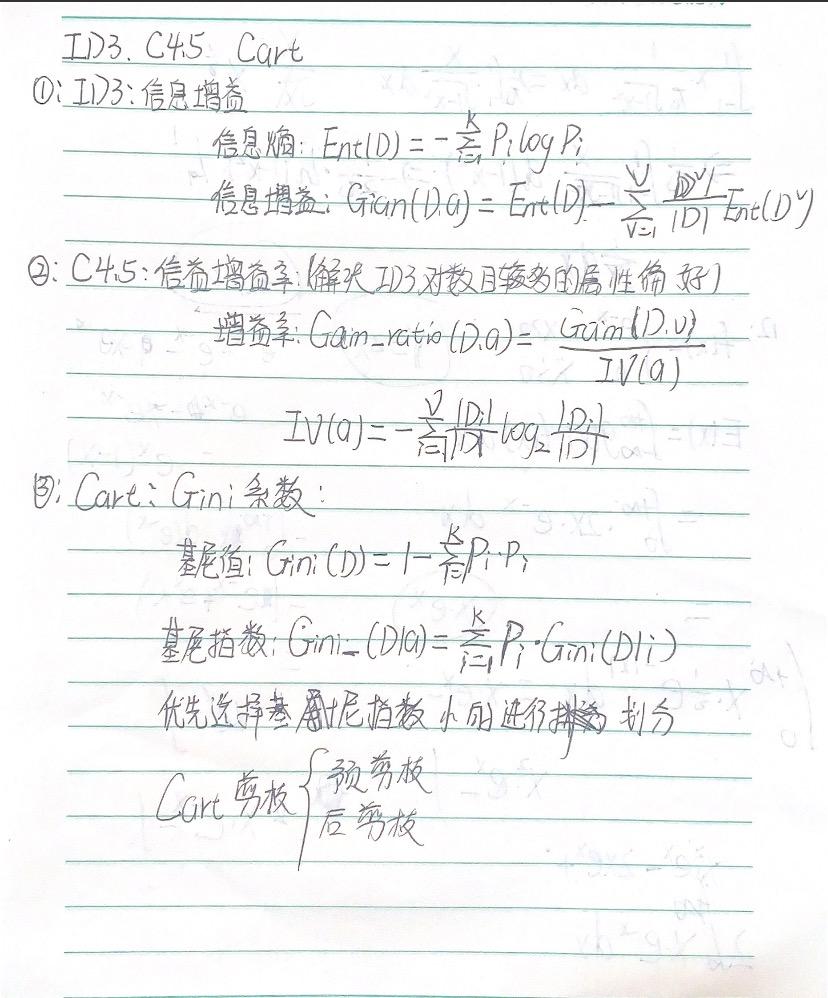 ID3. C4.5 Cart
①: ID3: 信息增益
信息熵: Ent(D) = -∑_{i=1}^{K} Pi log Pi
信息增益: Gian(D.a) = Ent(D) - ∑_{V=1}^{V} |D^v|/|D| Ent(D^v)
②: C4.5: 信益增益率: (解决ID3对数目较多的属性偏好)
增益率: Gain_ratio(D.a) = Gain(D.v)/IV(a)
IV(a) = -∑_{i=1}^{V} |Di|/|D| log₂ |Di|/|D|
③: Cart: Gini系数:
基尼值: Gini(D) = 1 - ∑_{i=1}^{K} Pi·Pi
基尼指数: Gini_(D|a) = ∑_{i=1}^{K} Pi·Gini(D|i)
优先选择基尼指数小的进行划分
Cart剪枝 { 预剪枝
后剪枝